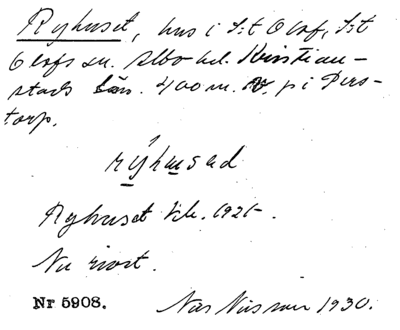 Ryhuset, hus i S:t Olof, S:t
Olofs sn. Albo hd. Kristian-
stads län. 400 m. N. p i Pers-
torp.
rýhusəd
Ryhuset 1921.
Nu rivet.
Nr 5908. Nils Nilsson 1930.